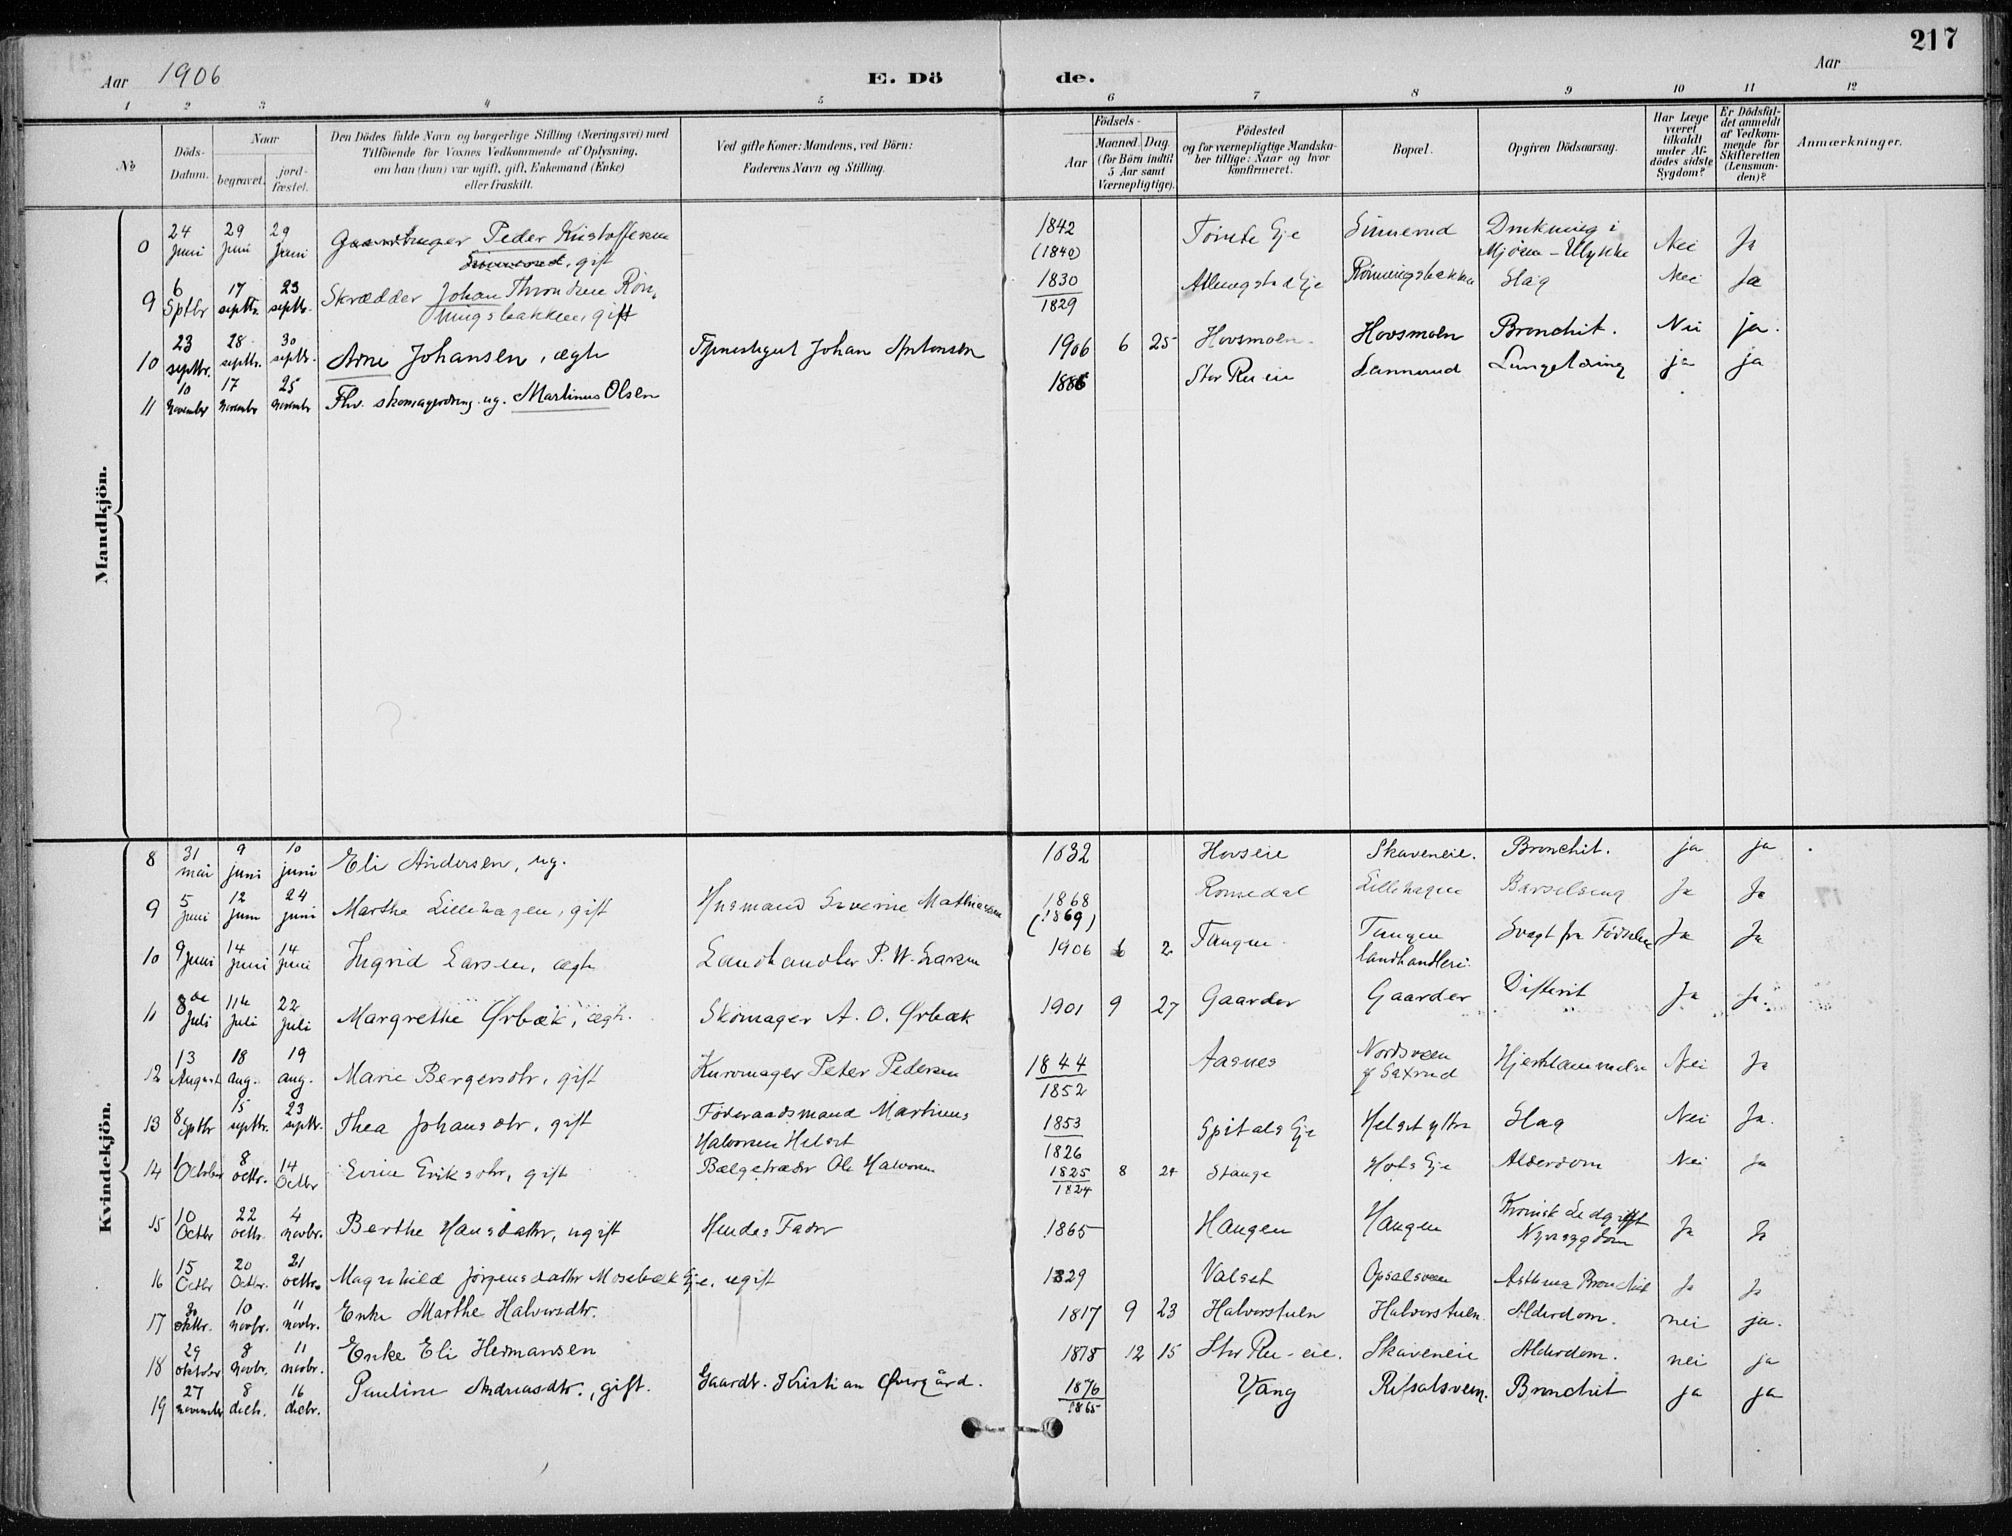 217
Aar 1906 E. Dö de. Aar
1 2 3 4 5 6 7 8 9 10 11 12
No
Döds-Datum.
Naar
begravet.
jord-fæstet.
Den Dödes fulde Navn og borgerlige Stilling (Næringsvei) med
Tilföiende for Voxnes Vedkommende af Oplysning,
om han (hun) var ugift, gift, Enkemand (Enke)
eller fraskilt.
Ved gifte Koner: Mandens, ved Börn:
Faderens Navn og Stilling.
Födsels-
Aar
Maaned. Dag.
(for Börn indtil
5 Aar samt
Værnepligtige).
Födested
og for værnepligtige Mandska-
ber tillige: Naar og hvor
konfirmeret.
Bopæl.
Opgiven Dödsaarsag.
Har Læge
været
tilkaldt
under Af-
dödes sidste
Sygdom?
Er Dödsfal-
det anmeldt
af Vedkom-
mende for
Skifteretten
(Lensman-
den)?
Anmærkninger.
Mandkjön.
24 Juni 29 Juni 29 Juni Peder Kristoffersen 1842
, gift (1840) Eje Drukning i Mjøsen - Ulykke Nei Ja
9 6 Sptbr 17 septbr. 23 septbr. Skrædder Johan Throndsen Røn-
ningsbakken, gift 1830 1829 Eje Rønningsbakken Slag Nei Ja
10 23 septbr. 28 septbr. 30 septbr. Arne Johansen, ægte Tjenestegut Johan Antonsen 1906 6 25 Hovsmoen. Hovsmoen Bronchit. Nei ja.
11 10 November 17 November 25 November Fhv. ug. Martinus Olsen Stor Ru eie Lungetæring ja ja
Kvindekjön.
8 31 mai 9 juni 10 juni Eli Andersen, ug. 1832 Hovseie Skaveneie. Bronchit. ja ja
9 5 Juni 12 juni 24 juni Marthe Lillehagen, gift Husmand Severin Mathiesen 1868 (1869) Romedal Lillehagen Barselseng Ja Ja
10 9 Juni 14 Juni 14 Juni Ingrid Larsen, ægte Landhandler P. W. Larsen 1906 6 2 Tangen Tangen landhandleri Svagt fra Fødselen Ja Ja
11 8de Juli 11te Juli 22 Juli Margrethe Ørbæk, ægte. Skomager A. O. Ørbæk 1901 9 27 Gaarder Gaarder Difterit Ja Ja.
12 13 August 18 aug. 19 aug. Marie Bergersdtr, gift Kurvmager Peter Pedersen 1844 1852 Aasnes Nordsveen Saxrud Hjertelammelse Nei Ja
13 8 Sptbr 15 septbr. 23 septbr. Thea Johansdtr, gift Føderaadsmand Martinus
Halvorsen Helset 1853 Spitals Eje Helset ytre Slag Nei Ja.
14 1 October 8 octbr. 14 Octbr Eriksdtr, gift Ole Halvorsen 1826 1825 1824 8 Stange Hofs Eje Alderdom Nei Ja
15 10 Octbr 22 octbr. 4 novbr. Berthe Hansdatter, ugift Hendes Fader 1865 Haugen Haugen Kronisk Ledgigt Nyresygdom Ja Ja
16 15 Octbr 20 Octbr. 21 octbr. Magnhild Jørgensdatter Mosebæk Eje, ugift 1829 Valset Opsalsveen Asthma Bronchit Ja Ja
17 30 oktbr. 10 novbr. 11 novbr. Enke Marthe Halvorsdtr. 1817 9 23 Halvorstuen Halvorstuen Alderdom. nei ja.
18 29 oktober 8 novbr. 11 novbr. Enke Eli Hermansen 12 15 Stor Ru-eie. Skaveneie Alderdom. nei ja
19 27 november 8 decb. 16 decbr. Pauline Andreasdtr., gift. Gaardbr. Kristian Øvergård. 1876 1865 Vang Refsalsveen. Bronchit ja ja